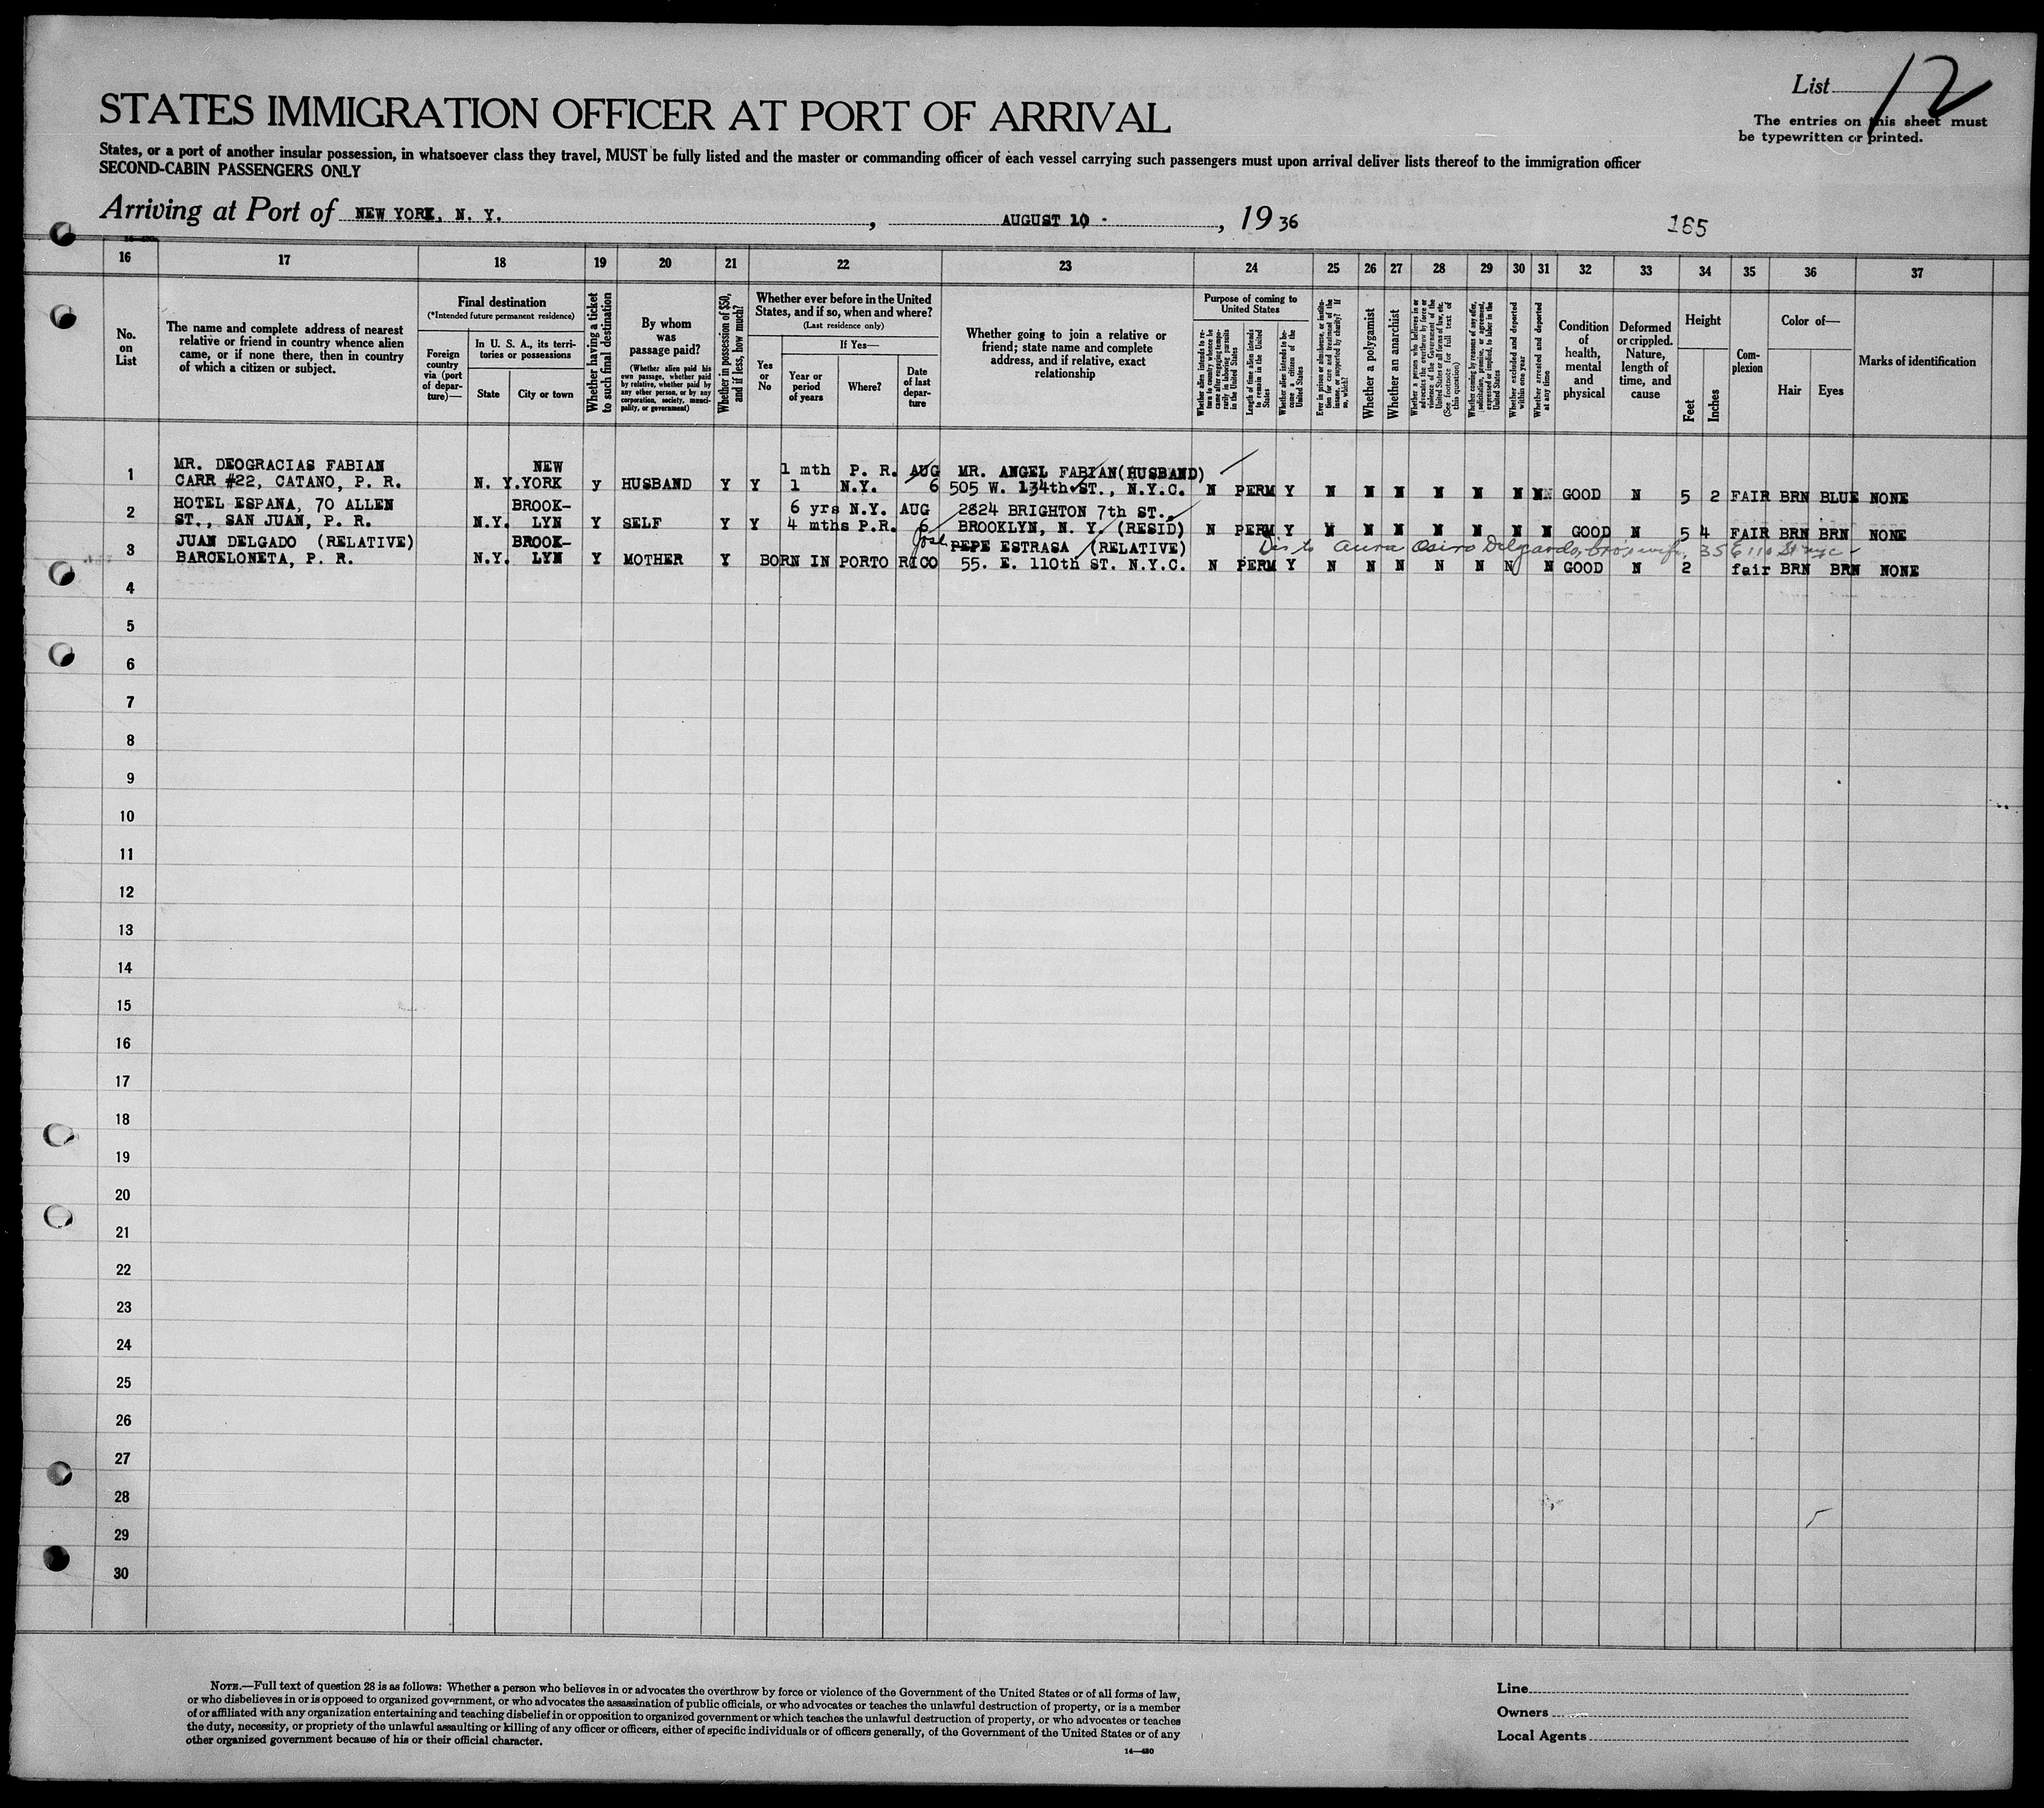 List 12
The entries on this sheet must
be typewritten or printed.
STATES IMMIGRATION OFFICER AT PORT OF ARRIVAL
States, or a port of another insular possession, in whatsoever class they travel, MUST be fully listed and the master or commanding officer of each vessel carrying such passengers must upon arrival deliver lists thereof to the immigration officer
SECOND-CABIN PASSENGERS ONLY
Arriving at Port of NEW YORK, N. Y. , AUGUST 10 , 1936
165
16 17 18 19 20 21 22 23 24 25 26 27 28 29 30 31 32 33 34 35 36 37
No. on List
The name and complete address of nearest
relative or friend in country whence alien
came, or if none there, then in country
of which a citizen or subject.
Final destination
(*Intended future permanent residence)
Foreign country via (port of departure)—
In U. S. A., its territories or possessions
State
City or town
Whether having a ticket to such final destination
By whom was passage paid?
(Whether alien paid his own passage, whether paid by relative, whether paid by any other person, or by any corporation, society, municipality, or government)
Whether in possession of $50, and if less, how much?
Whether ever before in the United
States, and if so, when and where?
(Last residence only)
Yes or No
If Yes—
Year or period of years
Where?
Date of last departure
Whether going to join a relative or
friend; state name and complete
address, and if relative, exact
relationship
Purpose of coming to
United States
Whether alien intends to return to country whence he came after engaging temporarily in laboring pursuits in the United States
Length of time alien intends to remain in the United States
Whether alien intends to become a citizen of the United States
Ever in prison or almshouse, or institution for care and treatment of the insane, or supported by charity? If so, which?
Whether a polygamist
Whether an anarchist
Whether a person who believes in or advocates the overthrow by force or violence of the Government of the United States or all forms of law, etc. (See footnote for full text of this question)
Whether coming by reasons of any offer, solicitation, promise, or agreement, expressed or implied, to labor in the United States
Whether excluded and deported within one year
Whether arrested and deported at any time
Condition of health, mental and physical
Deformed or crippled. Nature, length of time, and cause
Height
Feet
Inches
Complexion
Color of—
Hair
Eyes
Marks of identification
MR. DEOGRACIAS FABIAN NEW 1 mth P. R. AUG MR. ANGEL FABIAN(HUSBAND)
1 CARR #22, CATANO, P. R. N. Y. YORK y HUSBAND Y Y 1 N.Y. 6 505 W. 134th ST., N.Y.C. N PERM Y N N N N N N N GOOD N 5 2 FAIR BRN BLUE NONE
HOTEL ESPANA, 70 ALLEN BROOK- 6 yrs N.Y. AUG 2824 BRIGHTON 7th ST.,
2 ST., SAN JUAN, P. R. N.Y. LYN Y SELF Y Y 4 mths P.R. 6 BROOKLYN, N. Y. (RESID) N PERM Y N N N N N N N GOOD N 5 4 FAIR BRN BRN NONE
JUAN DELGADO (RELATIVE) BROOK- José PEPE ESTRASA (RELATIVE) Dis to Aura Osiro Delgardo,
3 BARCELONETA, P. R. N.Y. LYN Y MOTHER Y BORN IN PORTO RICO 55. E. 110th ST. N.Y.C. N PERM Y N N N N N N N GOOD N 2 fair BRN BRN NONE
4
5
6
7
8
9
10
11
12
13
14
15
16
17
18
19
20
21
22
23
24
25
26
27
28
29
30
NOTE.—Full text of question 28 is as follows: Whether a person who believes in or advocates the overthrow by force or violence of the Government of the United States or of all forms of law,
or who disbelieves in or is opposed to organized government, or who advocates the assassination of public officials, or who advocates or teaches the unlawful destruction of property, or is a member
of or affiliated with any organization entertaining and teaching disbelief in or opposition to organized government or which teaches the unlawful destruction of property, or who advocates or teaches
the duty, necessity, or propriety of the unlawful assaulting or killing of any officer or officers, either of specific individuals or of officers generally, of the Government of the United States or of any
other organized government because of his or their official character.
14—430
Line
Owners
Local Agents